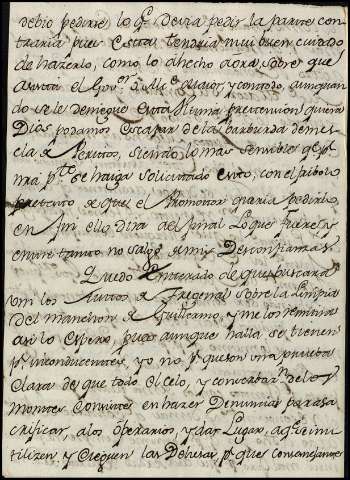 debio pedirse lo q.e devia pedir la parte con
traria pues esta tendria mui buen cuidado
de hazerlo, como lo a hecho aora, sobre que
el Gov.or y Alc.e maior, y contodo aunquan
do se le deniegue esta ultima pretension quiera
Dios podamos escapar de la barbarda de mes
cla de Peritos, siendo lo mas sensible q.e p.r
nra p.te se haiga solicitado esto, con el fribolo
pretexto de que el Promotor queria pedirlo,
en fin ello dira al final Lo que fuere, y
entre tanto no salgo de mis Desconfianzas.
Quedo Enterado de que buscara
Vm los Autos de Fregenal sobre la Limpia
del manchon de Guillermo, y me los remitira
asi lo espero, pues aunque halla se tienen
p.r inconducentes, yo no p.r que son una prueba
Clara de que todo el celo, y conservaz.n de los
Montes Consiste en hazer Denuncias para sa
crificar, a los operarios, y dar Lugar, a q.e se inu
tilizen, y cieguen las Dehesas p.r que